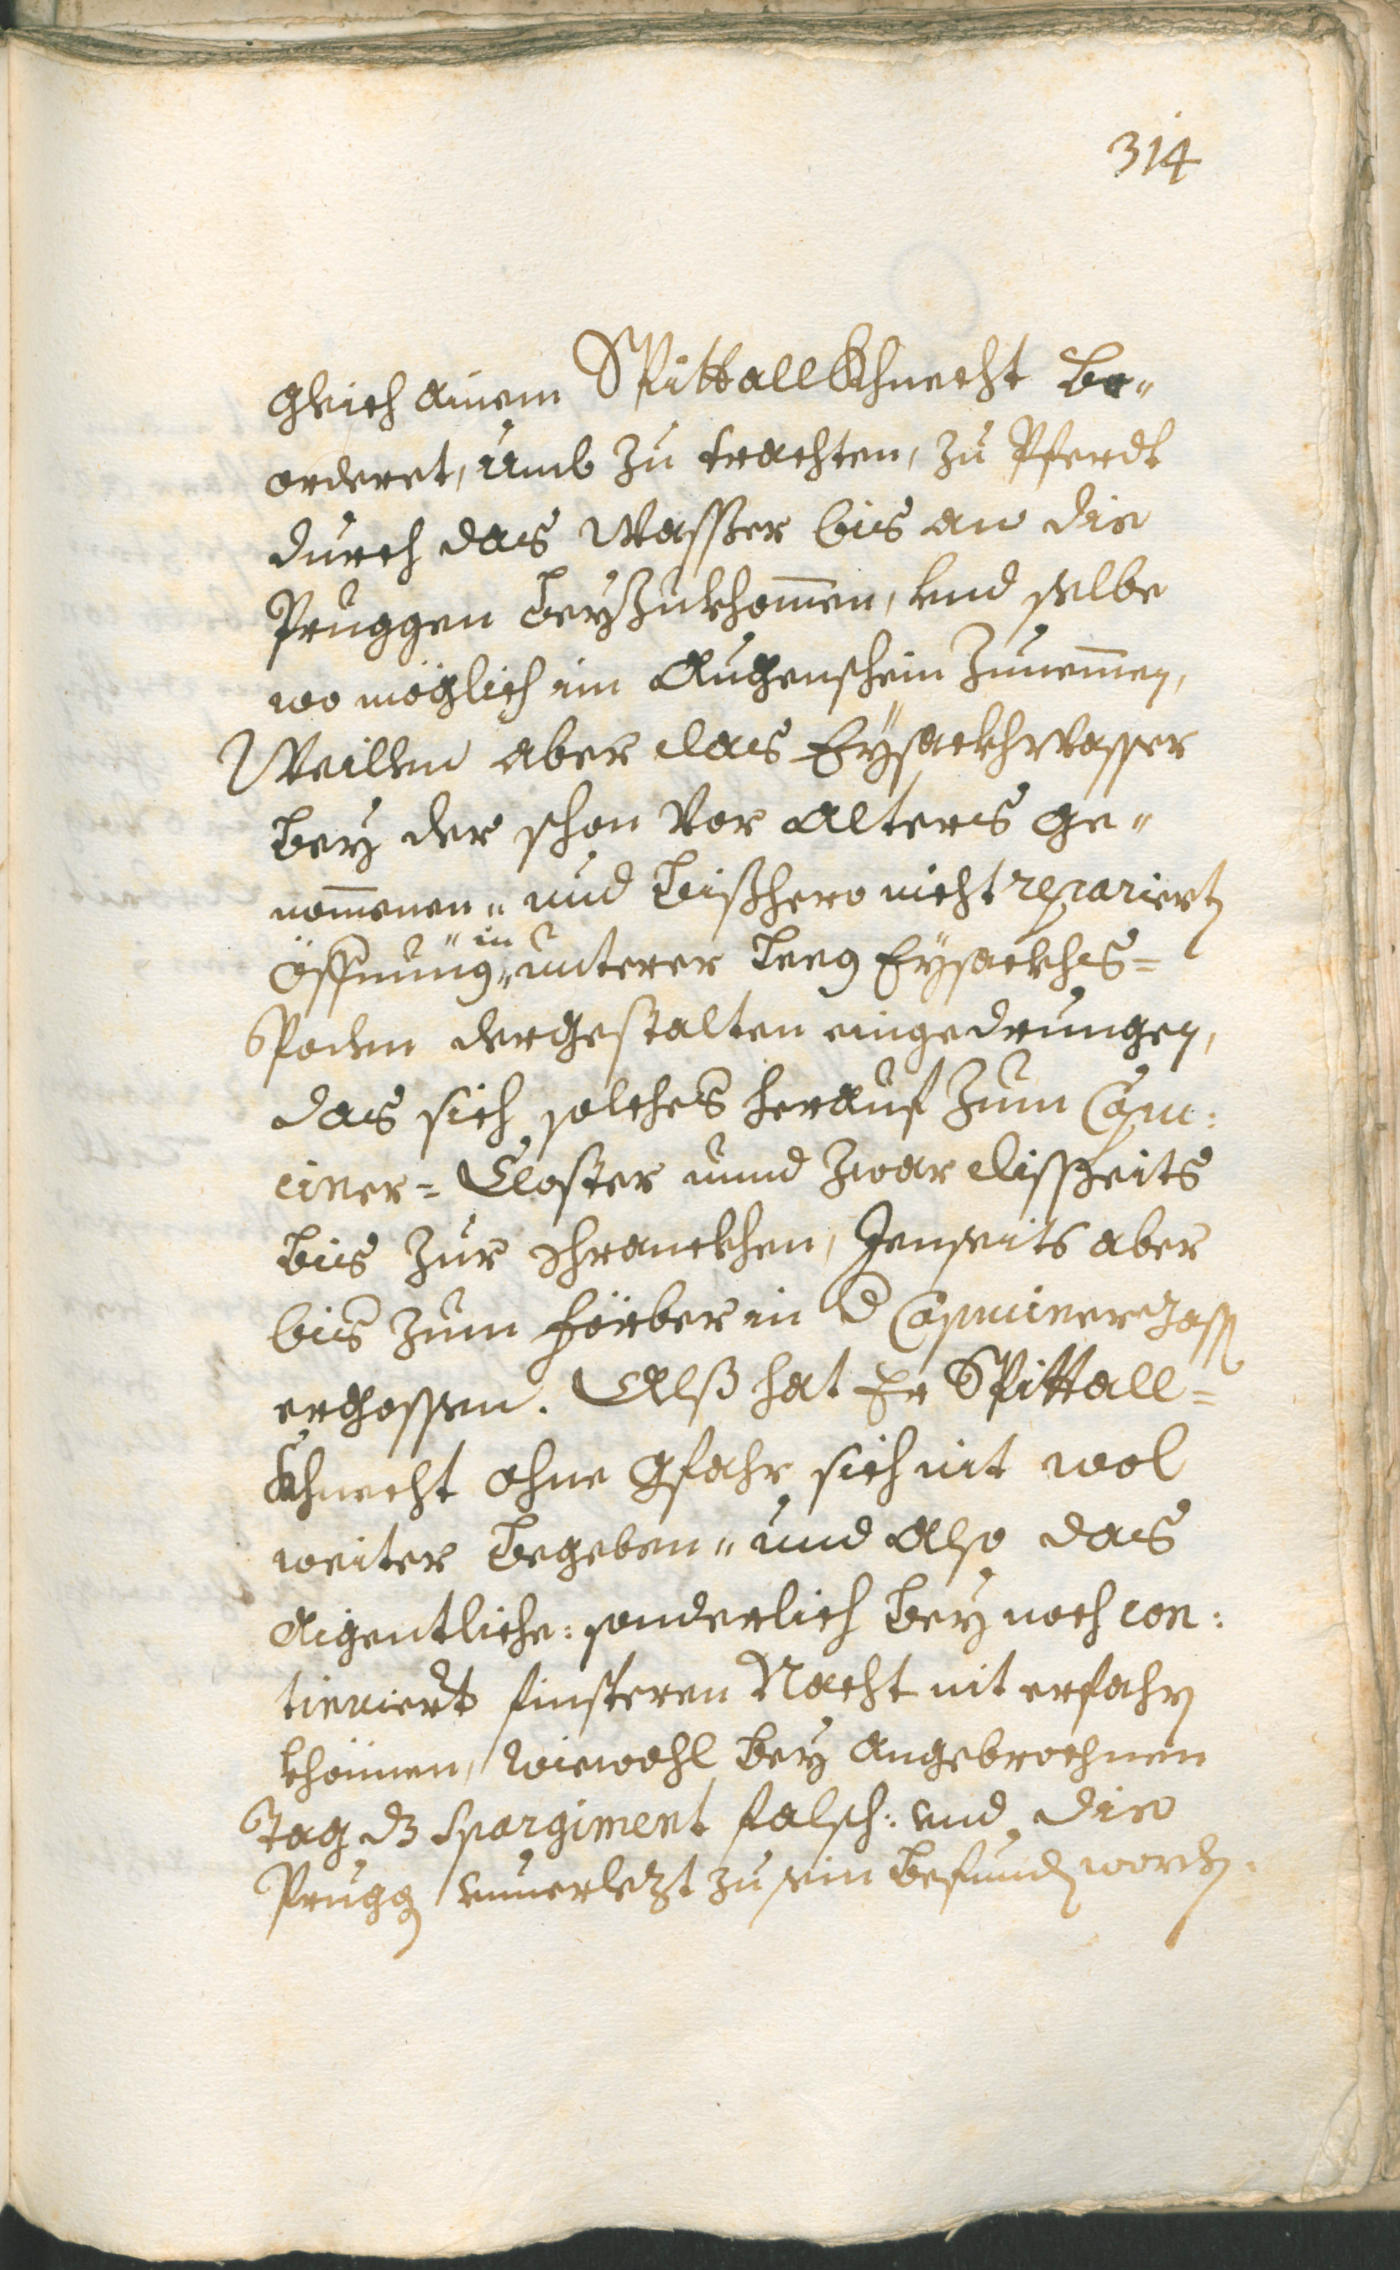 314
gleich ainem SPittallKhnecht be„
orderet, umb zu trachten, zu Pferdt
durch das Wasser bis an die
Pruggen beyzukhommen, und selbe
wo möglich im Augenschein zunemmen,
Weillen aber das Eysackhwasser
bey der schon vor alters ge„
nommenen„ und bißhero nicht reparierten
Öffnung„ in untern berg Eysackhs=
Poden dergestalten eingedrungen,
das sich solches herauf zum Capu:
ciner= Closter unnd zwar disseits
bis zur schranckhen, Jenseits aber
bis zum färber in der Capucinergassen
ergossen. Alß hat Er SPittall=
Khnecht ohne Gfahr sich nit wol
weiter begeben„ und also das
Aigentliche: sonderlich bey noch con:
tinuiert finsteren Nacht nit erfahren
khönnen, wiewohl bey angebrochnen
Tag dz spargiment falsch: und die
Pruggen unuerlezt zu sein befunden worden.